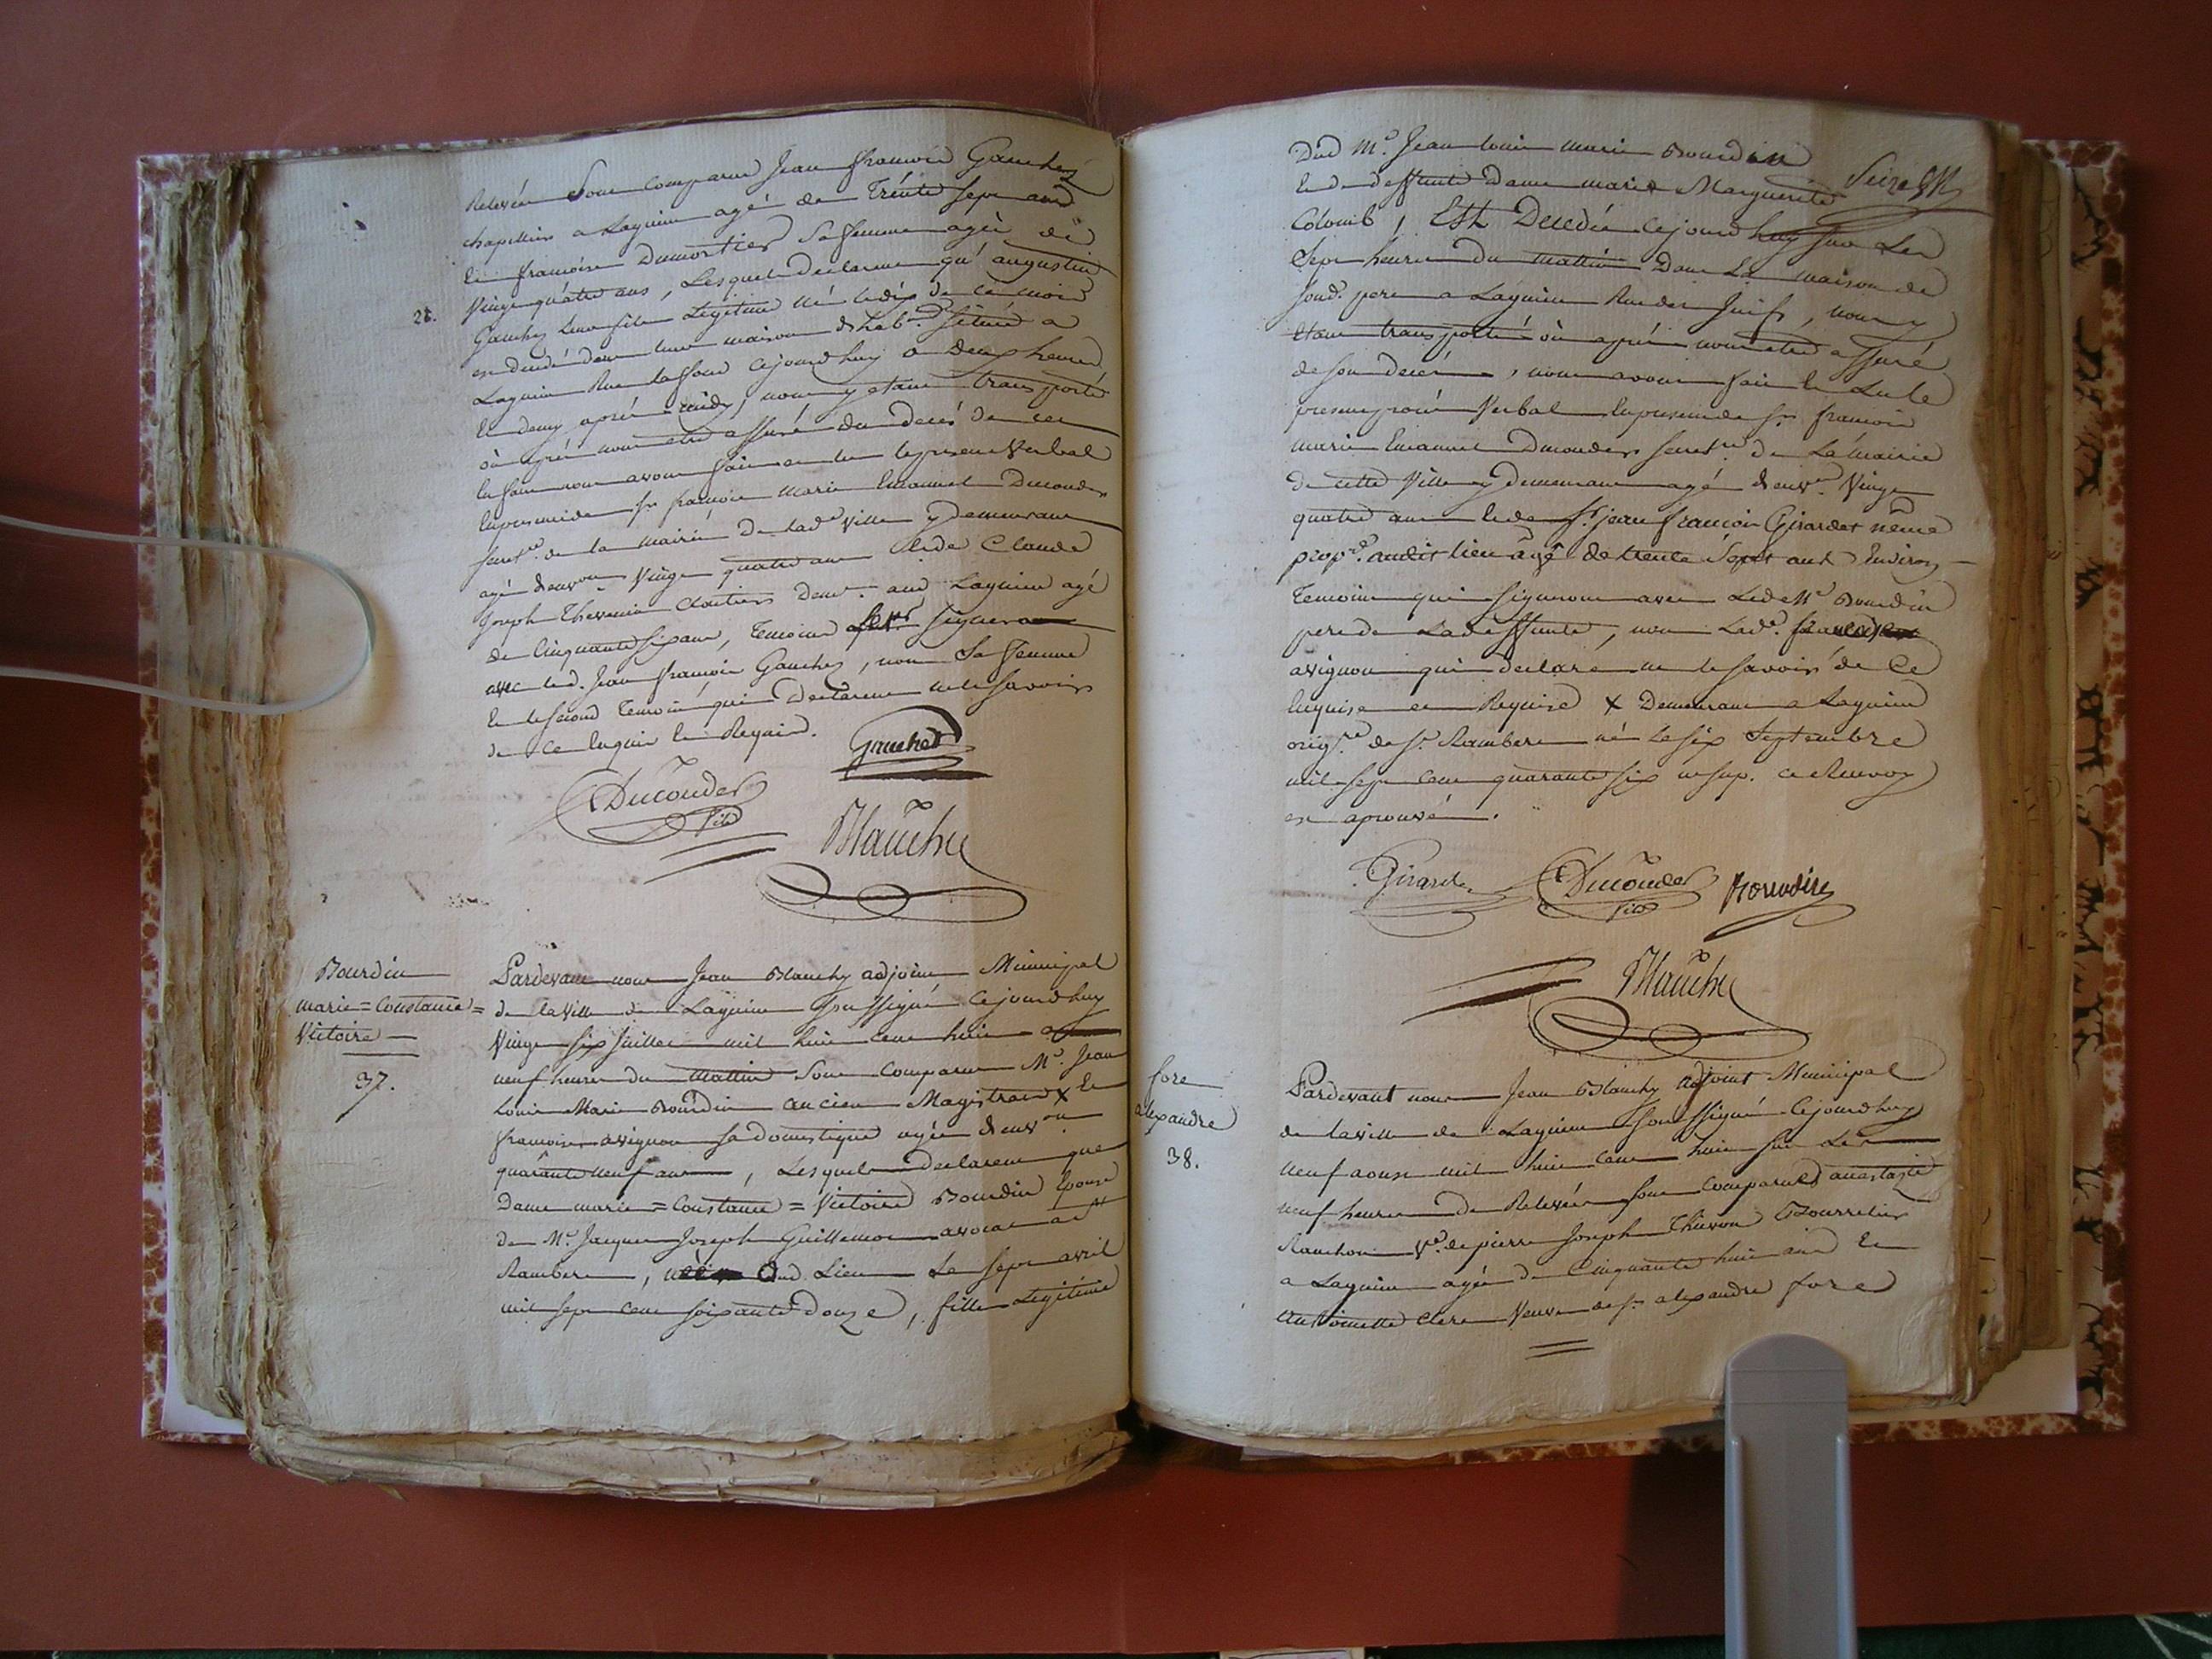 Relevée Sont comparus Jean françois Gauchez
chapellier a Lagnieu agé de Trente sept ans
et françoise Dumortier Sa femme agée de
Vingt quatre ans, Lesquels Declarent qu'augustin
28.
Gauchez leur fils Legitime né le dix de ce mois
est decedé dans leur maison d'hab.on Située a
Lagnieu Rue cejourd'huy a deux heures
et demy aprés midy, nous y etant transporté
où aprés nous etre assuré du decés de cet
enfant nous avons fait et lu le present Verbal
en presence de Sr françois Marie Emanuel Ducouder
secret.re de la mairie de lad.e Ville y demeurant
agé d'environ Vingt quatre ans et de Claude
Joseph Thevenin Cloutier dem.t aud Lagnieu agé
de Cinquante six ans, Temoins signeront
avec led. Jean françois Gauchez, non Sa femme
et le second Temoin qui Declarent ne le savoir
de ce Enquis et Requis.
Gauchez
Ducouder
fils
Blanchy
Bourdin
marie = Constance =
Victoire
37.
Pardevant nous Jean Blanchy adjoint Municipal
de la Ville de Lagnieu Soussigné cejourd'huy
Vingt six juillet mil huit cent huit a
neuf heures du mattin Sont comparus Mr. Jean
Louis Marie Bourdin ancien Magistrat X et
françoise avignon sa domestique agée d'env.on
quarante neuf ans, Lesquels declarent que
Dame marie = Constance = Victoire Bourdin Epouse
de Mr. Jacques Joseph Guillemot avocat a St
Rambert, née Aud. Lieu Le sept avril
mil sept cent soixante douze, fille Legitime
Dud Mr. Jean Louis Marie Bourdin
et de deffunte Dame marie Marguerite
Colomb, Est Decedée cejourd'huy sur Les
Sept heures du mattin Dans La maison de
sond. pere a Lagnieu Rue des Juifs, nous y
etant transporté où aprés nous etre assuré
de son decés, nous avons fait et Lu le
present procés Verbal en presence de Sr. françois
marie Emanuel Ducouder secret.re de La mairie
de cette Ville y demeurant agé d'env.on Vingt
quatre ans et de Sr. jean françois Girardet
prop.re audit lieu âgé de trente Sept ans Environ
Temoins qui signeront avec Led Mr Bourdin
pere de La deffunte, non Lad.e
avignon qui declare ne le savoir de Ce
Enquise et Requise X Demeurant a Lagnieu
orig.re de St. Rambert né Le six Septembre
mil sept cent quarante six ce Renvoy
est aprouvé.
Girardet
Ducouder
fils
Bourdin
Blanchy
fore
alexandre
38.
Pardevant nous Jean Blanchy adjoint Municipal
de la ville de Lagnieu Soussigné Cejourd'huy
neuf aoust mil huit cent huit sur Les
neuf heures de Relevée sont comparues anastazie
Ranchon V.e de pierre Joseph Thievon Bourrelier
a Lagnieu agée de Cinquante huit ans et
Antoinette Clerc Veuve de Sr alexandre fore